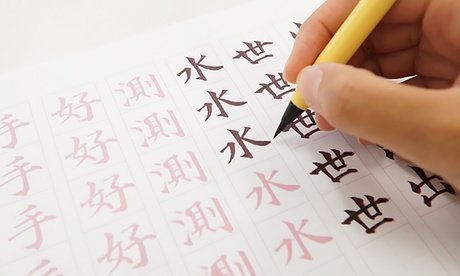 世世世世世
水水水水水
測測測測測
好好好好
手手手手